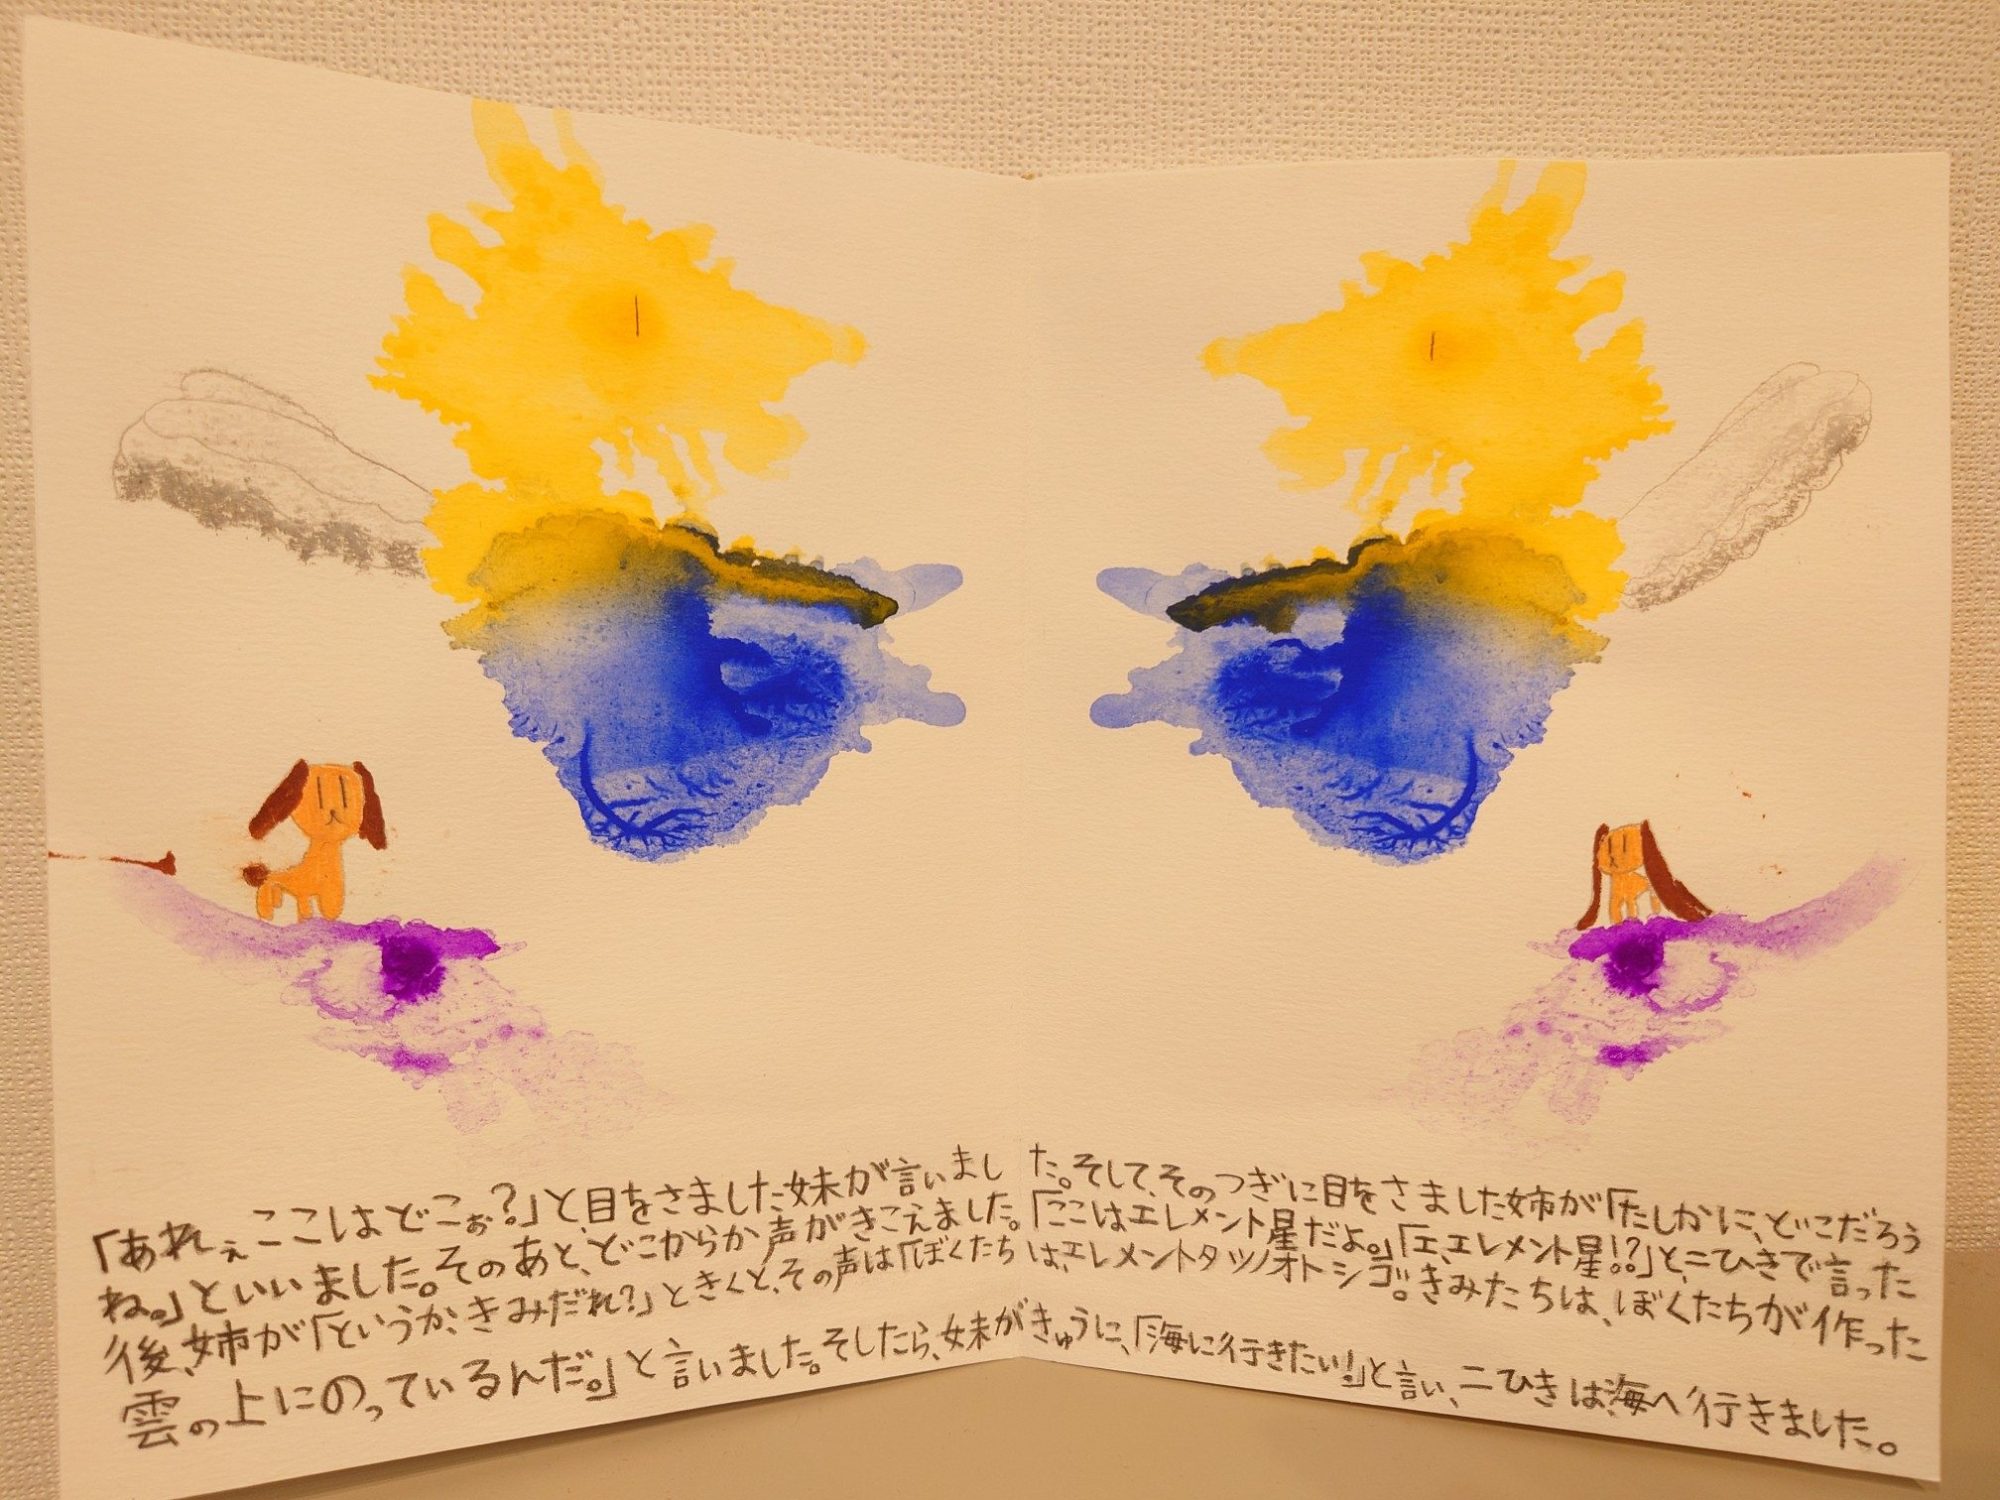 「あれぇここはどこぉ?」と、目をさました妹が言いました。そして、そのつぎに目をさました姉が「たしかに、どこだろう
ね。」といいました。そのあと、どこからか声がきこえました。「ここはエレメント星だよ。」「エ、エレメント星!?」と、二ひきで言った
後、姉が「というか、きみだれ?」ときくと、その声は「ぼくたちは、エレメントタツノオトシゴ。きみたちは、ぼくたちが作った
雲の上にのっているんだ。」と言いました。そしたら、妹がきゅうに、「海に行きたい!」と言い、二ひきは、海へ行きました。